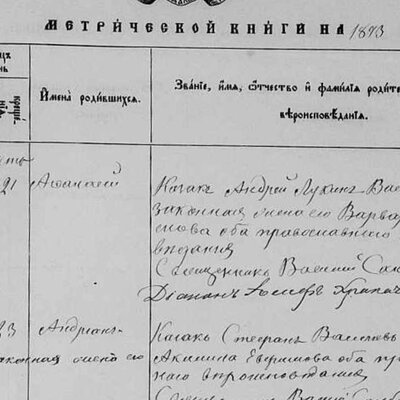 МЕТРИ́ЧЕСКОЙ КНИ́ГИ НА 1873
Имена̀ роди́вшихся.
Зва́нїе, и́мя, ѻ́тчество и҆ фами́лїя роди́те
вѣроисповѣ́данїя.
21 Аѳанасій
Казакъ Андрей Лукинъ Вас
законная жена его Варва
нова оба православнаго
Священникъ Василій
Діаконъ Іосифъ
23 Андріанъ
Казакъ Стефанъ Васильевъ
законная жена его
Акилина Ефимова оба пр
наго вѣроисповѣданія